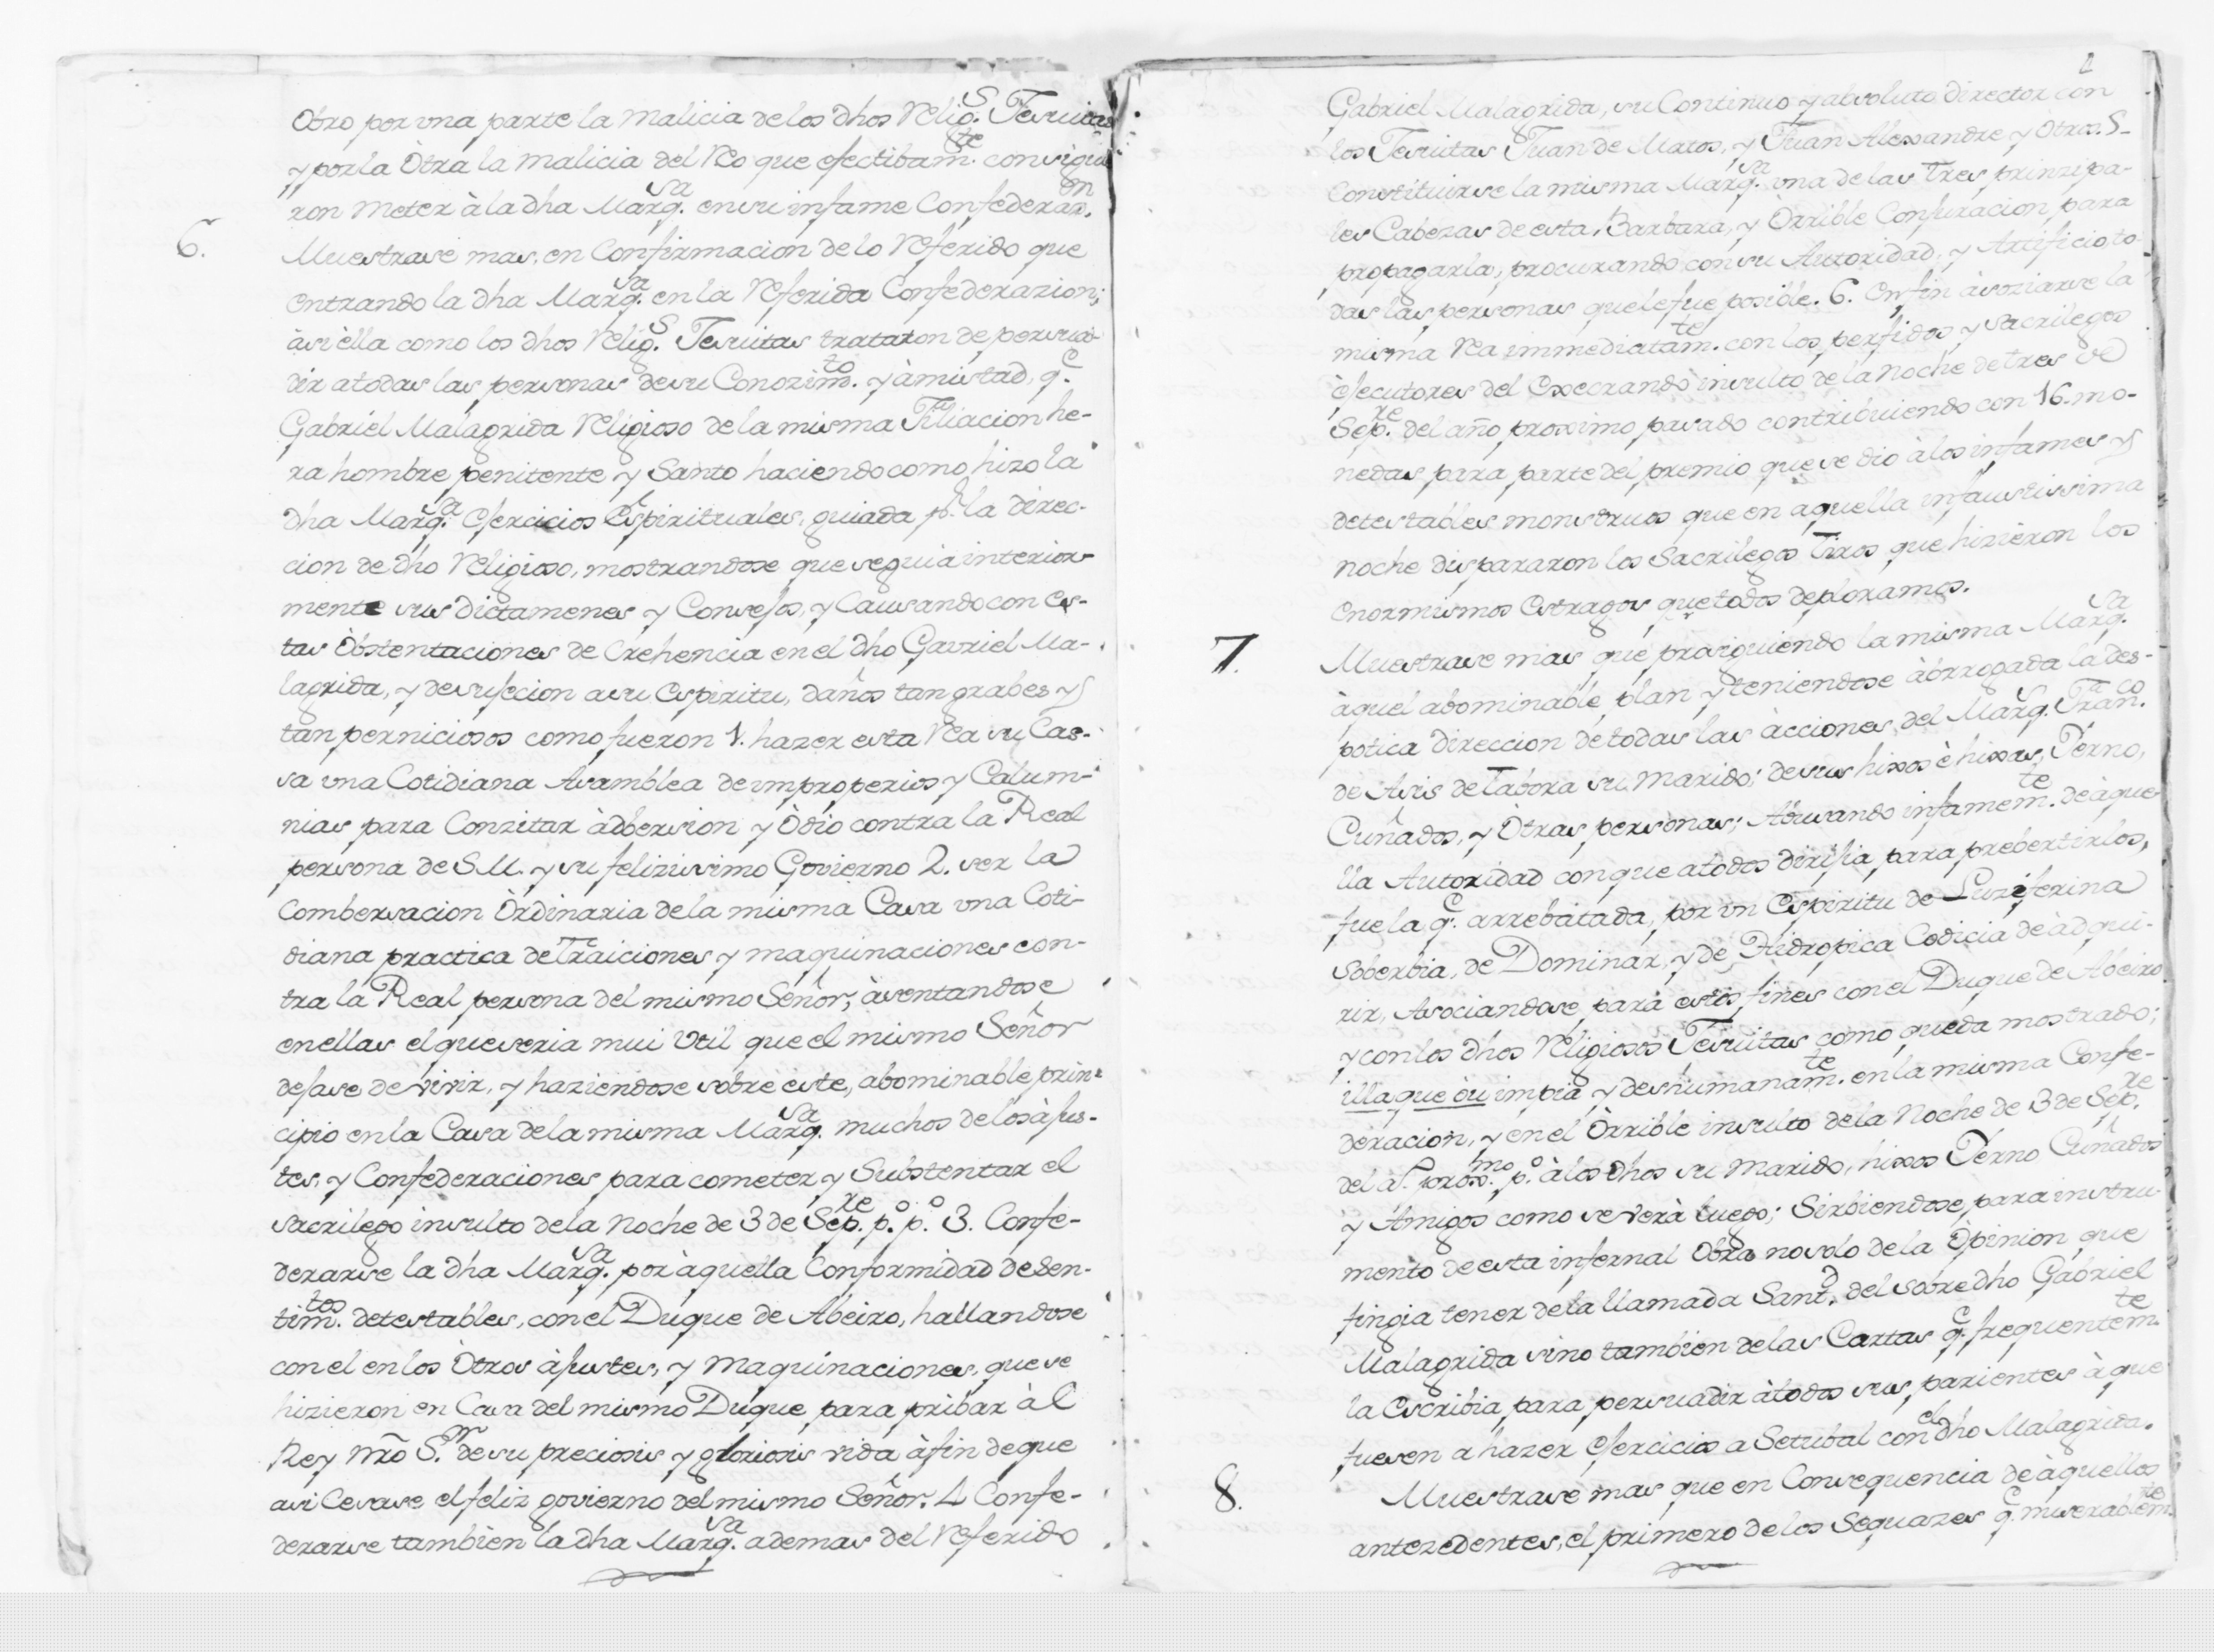 Otro por vna parte la malicia de los dhos Relig.s Jesuitas
y por la Òtra la malicia del Reo que efectibam.te consiguie
ron meter à la dha Marq.sa en su infame Confederaz.on
6. Muestrase mas, en Confirmacion de lo Referido que
entrando la dha Marq.sa en la Referida Confederazion;
àsi èlla como los dhos Relig.s Jesuitas trataron de persua-
dir a todas las personas de su Conozim.to y àmistad, q.e
Gabriel Malagrida Religioso de la misma Filiacion he-
ra hombre penitente y Santo haciendo como hizo la
dha Marq.sa Ejercicios Espirituales, guiada p.r la direc-
cion de dho Religioso, mostrandose que seguia interior-
mente sus Dictamenes y Consejos, y Causando con es-
tas Òbstentaciones de Crehencia en el dho Gavriel Ma-
lagrida, y de sujecion a su Espiritu, daños tan grabes y
tan perniciosos como fueron 1. hazer esta Rea su Cas-
sa vna Cotidiana Asamblea de improperios y Calum-
nias para Conzitar àdbersion y Òdio contra la Real
persona de S.M. y su felizissimo Govierno 2. ser la
Combersacion Òrdinaria de la misma Casa vna Coti-
diana practica de Traiciones y maquinaciones con-
tra la Real persona del mismo Señor; àsentandose
en ellas el que seria mui Vtil que el mismo Señor
dejase de vivir, y haziendose sobre èste, abominable prin-
cipio en la Casa de la misma Marq.sa muchos de los àjus-
tes, y Confederaciones para cometer y Substentar el
sacrilego insulto de la Noche de 3 de Sep.re p.o p.o 3. Confe-
derarse la dha Marq.sa por àquella Conformidad de sen-
tim.tos detestables, con el Duque de Abeiro, hallandose
con el en los Òtros àjustes, y maquinaciones, que se
hizieron en Casa del mismo Duque para pribar àl
Rey nrõ S.or de su preciosis y gloriosis vida àfin de que
asi Cesase el feliz govierno del mismo Señor. 4 Confe-
derarse tambien la dha Marq.sa ademas del Referido
Gabriel Malagrida, su Continuo y absoluto director con
los Jesuitas Juan de Matos, y Juan Alexandre y Otros. 5-
Constituirse la misma Marq.sa vna de las Tres prinzipa-
les Cabezas de esta, Barbara, y Òrrible Conjuracion para
propagarla, procurando con su Autoridad, y Artificio, to
das las personas que le fue posible. 6. Enfin àsoziarse la
misma Rea immediatam.te con los perfidos y sacrilegos
èjecutores del Execrando insulto de la noche de tres de
Sep.re del año proximo pasado contribuiendo con 16. mo-
nedas para parte del premio que se dio à los infames y
detestables monstruos que en aquella infaustissima
noche dispararon los Sacrilegos Tiros que hizieron los
enormismos Estragos que todos deploramos.
7. Muestrase mas que prosiguiendo la misma Marq.sa
àquel abominable plan y teniendose àbrrogada la des-
potica direccion de todas las àcciones, del Marq.s Fran.co
de Asis de Tabora su marido; de sus hixos è hixas, Yerno,
Cuñados, y Òtras personas; Abusando infamem.te de àque
lla Autoridad con que a todos dirijia para prebertirlos,
fue la q.e arrebatada, por vn Espiritu de Luziferina
Soberbia, de Dominar, y de Hidropica Codicia de àdqui-
rir, Asociandose para estos fines con el Duque de Abeiro
y con los dhos Religiosos Jesuitas como queda mostrado;
illaqueòu impia y deshumanam.te en la misma Confe-
deracion, y en el Òrrible insulto de la Noche de 3 de Sep.re
del a.o prox.mo p.o à los dhos su marido, hixos Yerno Cuñados
y Amigos como se verà luego; Sirbiendose para instru
mento de esta infernal Obra no solo de la Òpinion que
fingia tener de la llamada Sant.d del sobredho Gabriel
Malagrida sino tambien de las Cartas q.e frequentem.te
la Escribia para persuadir à todos sus parientes à que
fuesen a hazer Ejercicios a Setubal con el dho Malagrida.
8. Muestrase mas que en Consequencia de àquellos
antezedentes, el primero de los Sequazes q.e miserablem.te